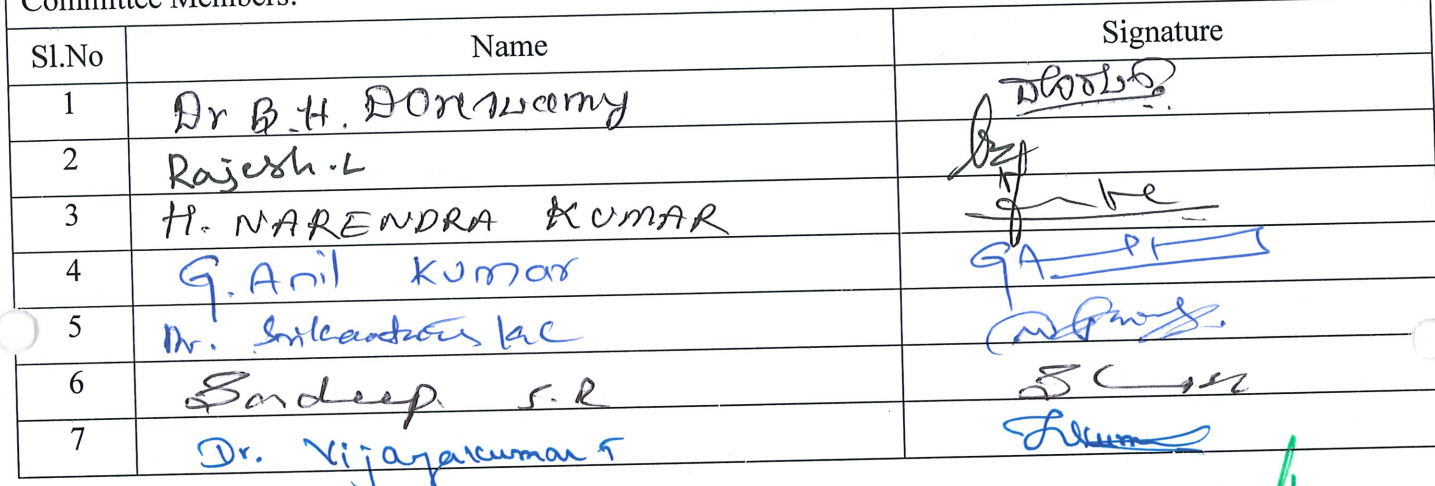 Committee Members:
Sl.No Name Signature
1 Dr B.H. Doreswamy
2 Rajesh.L
3 H. NARENDRA KUMAR
4 G. Anil Kumar GA
5 Dr.
6 Sandeep S.R
7 Dr. Vijayakumar T